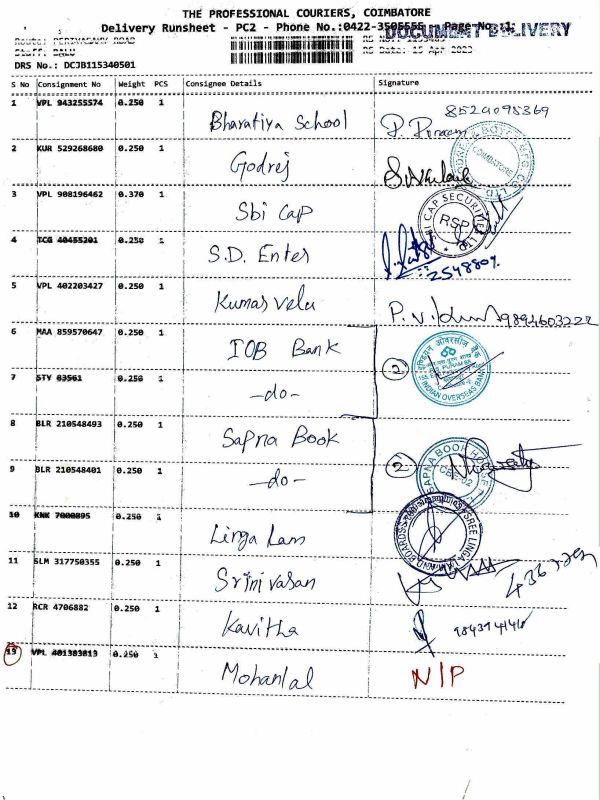 THE PROFESSIONAL COURIERS, COIMBATORE
Delivery Runsheet - PC2 - Phone No.:0422-3505555 Page No.:1:
DOCUMENT DELIVERY
Route: PERIYASAMY ROAD
Staff: BALU
RS Date: 15 Apr 2023
DRS No.: DCJB115340501
S No Consignment No Weight PCS Consignee Details Signature
1 VPL 943255574 0.250 1 Bharatiya School 8524095369
2 KUR 529268680 0.250 1 Godrej
COIMBATORE
3 VPL 908196462 0.370 1 Sbi Cap
SBI CAP SECURITIES LTD
RSP
4 TCG 40455201 0.250 1 S.D. Enter
5 VPL 402203427 0.250 1 Kumar Velu
6 MAA 859570647 0.250 1 IOB Bank
2
INDIAN OVERSEAS BANK
7 STY 83561 0.250 1 -do-
8 BLR 210548493 0.250 1 Sapna Book
SAPNA BOOK HOUSE
CBE-02
2
9 BLR 210548401 0.250 1 -do-
10 KNK 7000895 0.250 1 Linga Lam
SREE LINGA
AND BOARDS
11 SLM 317750355 0.250 1 Srinivasan
12 RCR 4706882 0.250 1 Kavitha
13 VPL 401383813 0.250 1 Mohanlal N/P